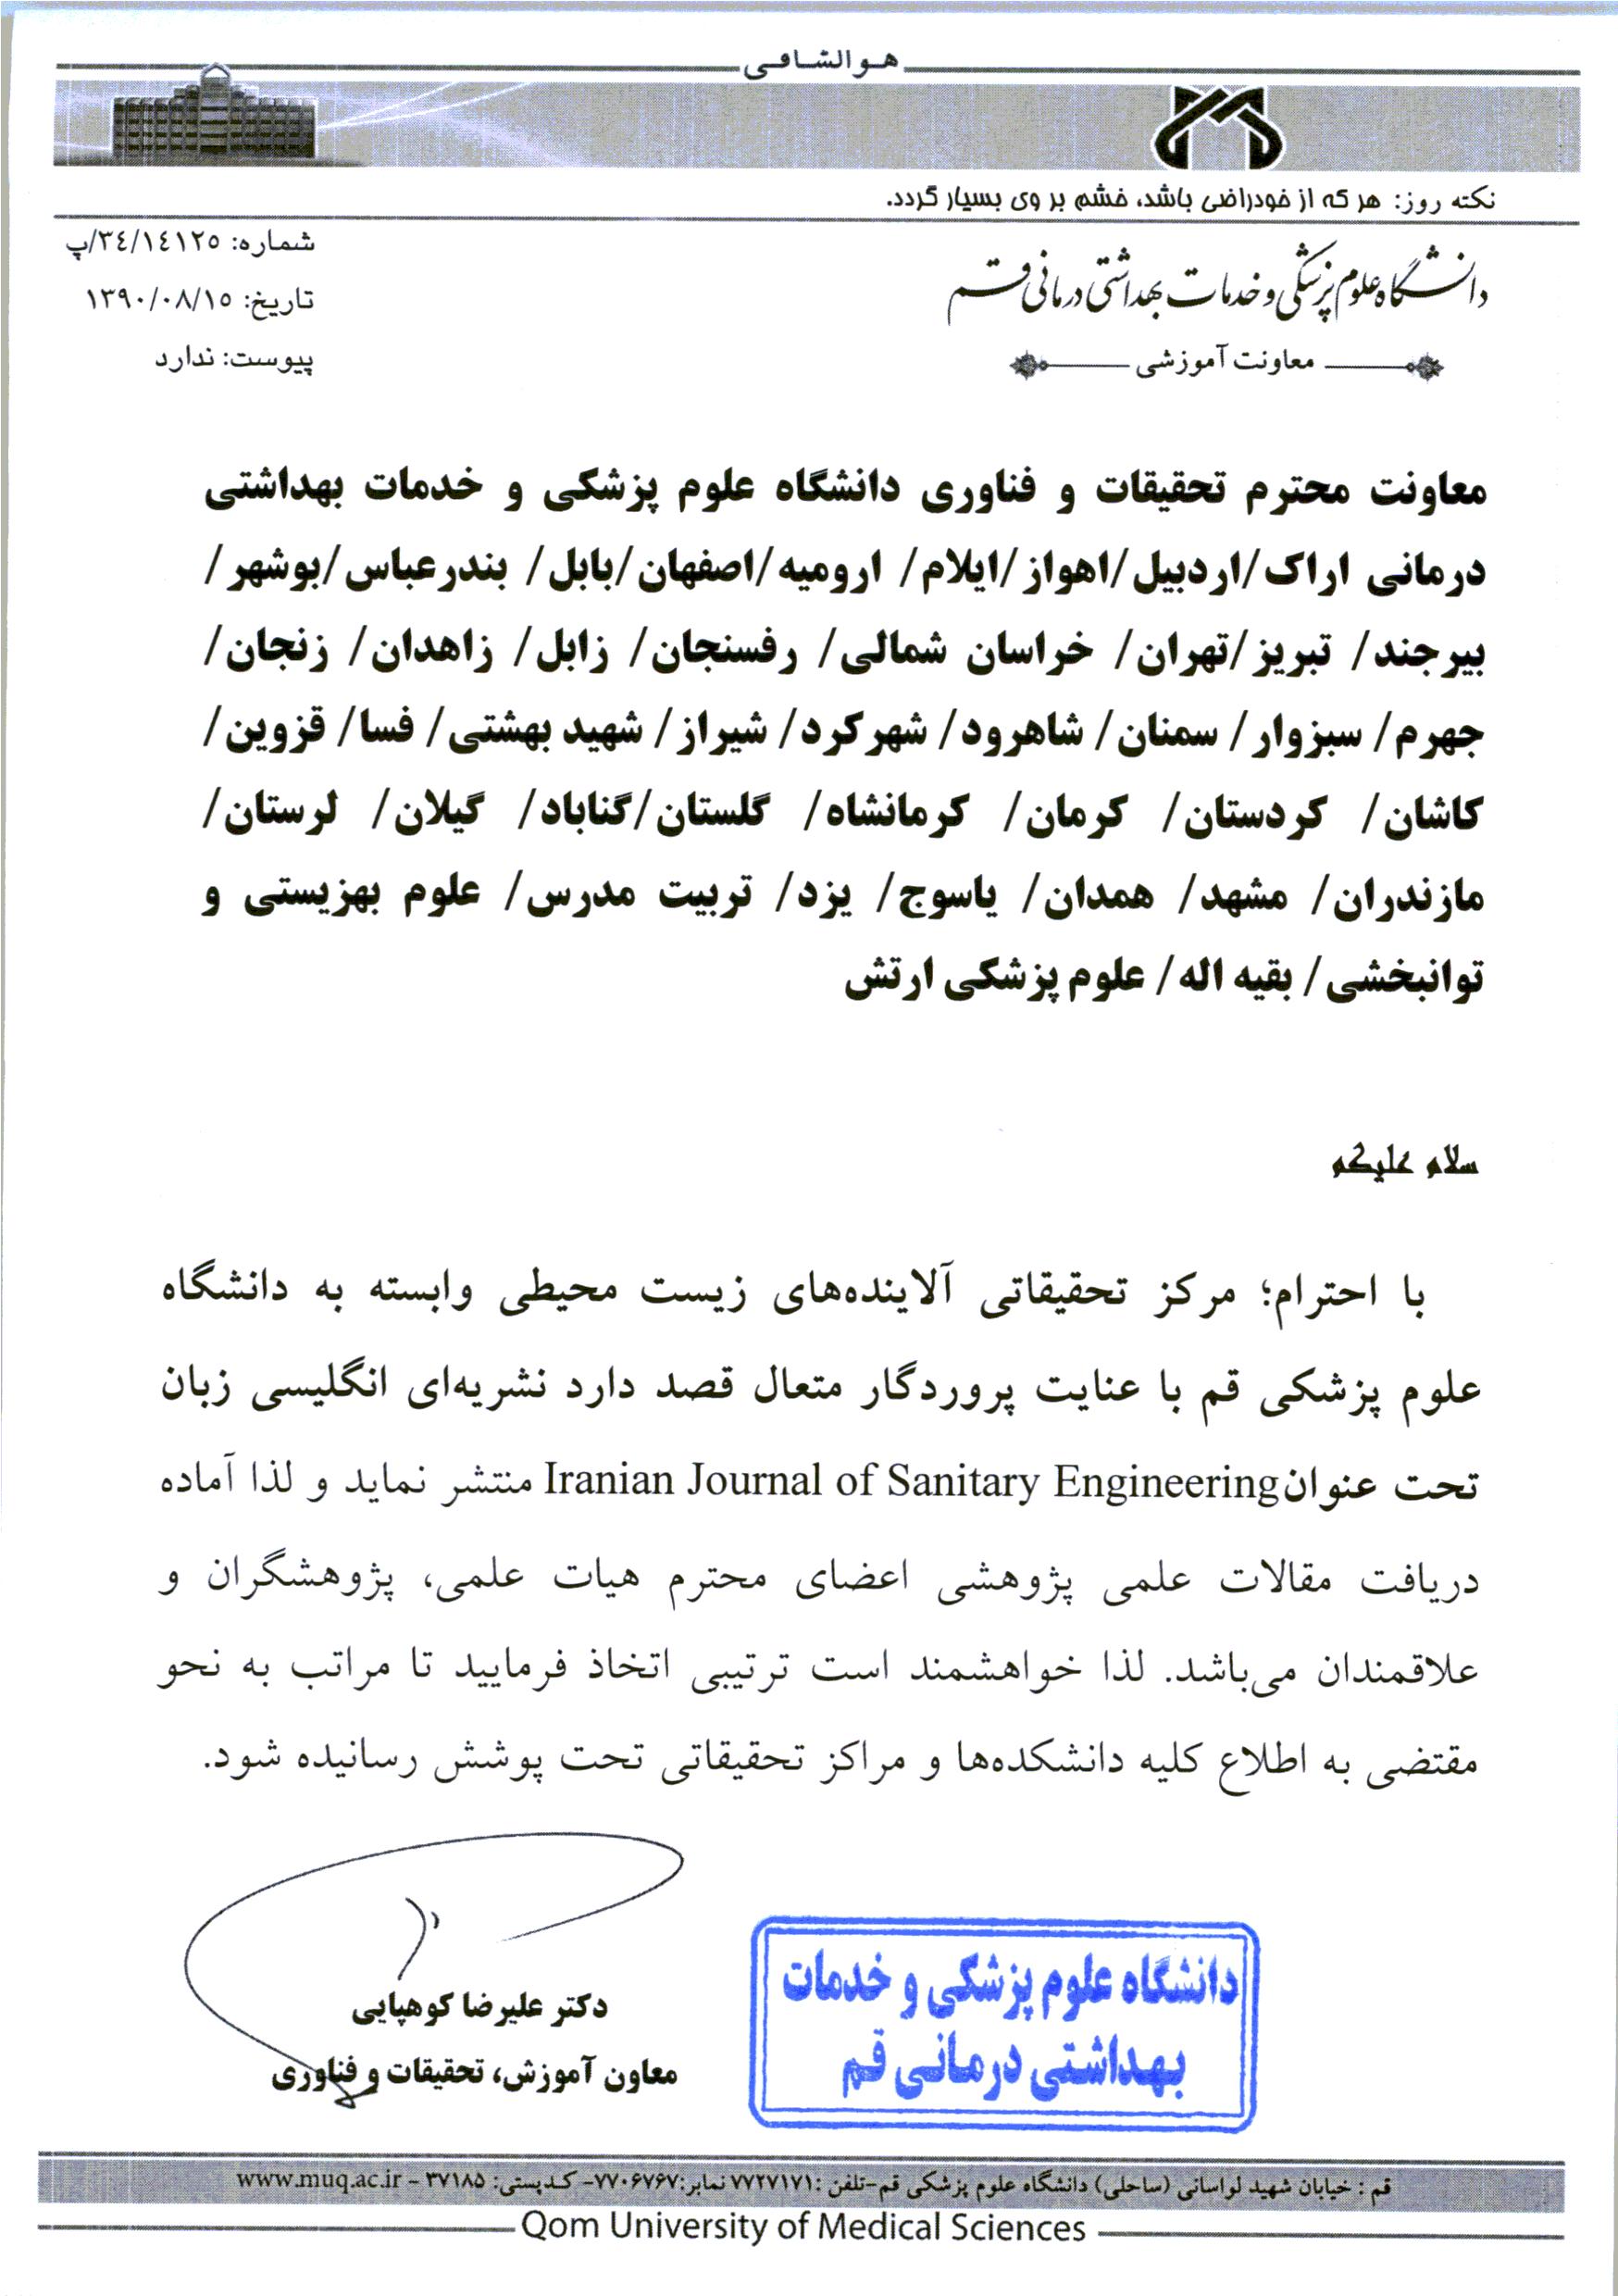 هوالشافی
نکته روز: هر که از خودراضی باشد، خشم بر وی بسیار گردد.
شماره: ۳٤/۱٤۱۲٥/پ
تاریخ: ۱۳۹۰/۰۸/۱٥
پیوست: ندارد
دانشگاه علوم پزشکی و خدمات بهداشتی درمانی قم
معاونت آموزشی
معاونت محترم تحقیقات و فناوری دانشگاه علوم پزشکی و خدمات بهداشتی
درمانی اراک/اردبیل/اهواز/ایلام/ ارومیه/اصفهان/بابل/ بندرعباس/بوشهر/
بیرجند/ تبریز/تهران/ خراسان شمالی/ رفسنجان/ زابل/ زاهدان/ زنجان/
جهرم/ سبزوار/ سمنان/ شاهرود/ شهرکرد/ شیراز/ شهید بهشتی/ فسا/ قزوین/
کاشان/ کردستان/ کرمان/ کرمانشاه/ گلستان/گناباد/ گیلان/ لرستان/
مازندران/ مشهد/ همدان/ یاسوج/ یزد/ تربیت مدرس/ علوم بهزیستی و
توانبخشی/ بقیه اله/ علوم پزشکی ارتش
سلام علیکم
با احترام؛ مرکز تحقیقاتی آلاینده‌های زیست محیطی وابسته به دانشگاه
علوم پزشکی قم با عنایت پروردگار متعال قصد دارد نشریه‌ای انگلیسی زبان
تحت عنوان Iranian Journal of Sanitary Engineering منتشر نماید و لذا آماده
دریافت مقالات علمی پژوهشی اعضای محترم هیات علمی، پژوهشگران و
علاقمندان می‌باشد. لذا خواهشمند است ترتیبی اتخاذ فرمایید تا مراتب به نحو
مقتضی به اطلاع کلیه دانشکده‌ها و مراکز تحقیقاتی تحت پوشش رسانیده شود.
دانشگاه علوم پزشکی و خدمات
بهداشتی درمانی قم
دکتر علیرضا کوهپایی
معاون آموزش، تحقیقات و فناوری
قم : خیابان شهید لواسانی (ساحلی) دانشگاه علوم پزشکی قم-تلفن :۷۷۲۷۱۷۱ نمابر:۷۷۰۶۷۶۷- کدپستی: ۳۷۱۸۵ - www.muq.ac.ir
Qom University of Medical Sciences